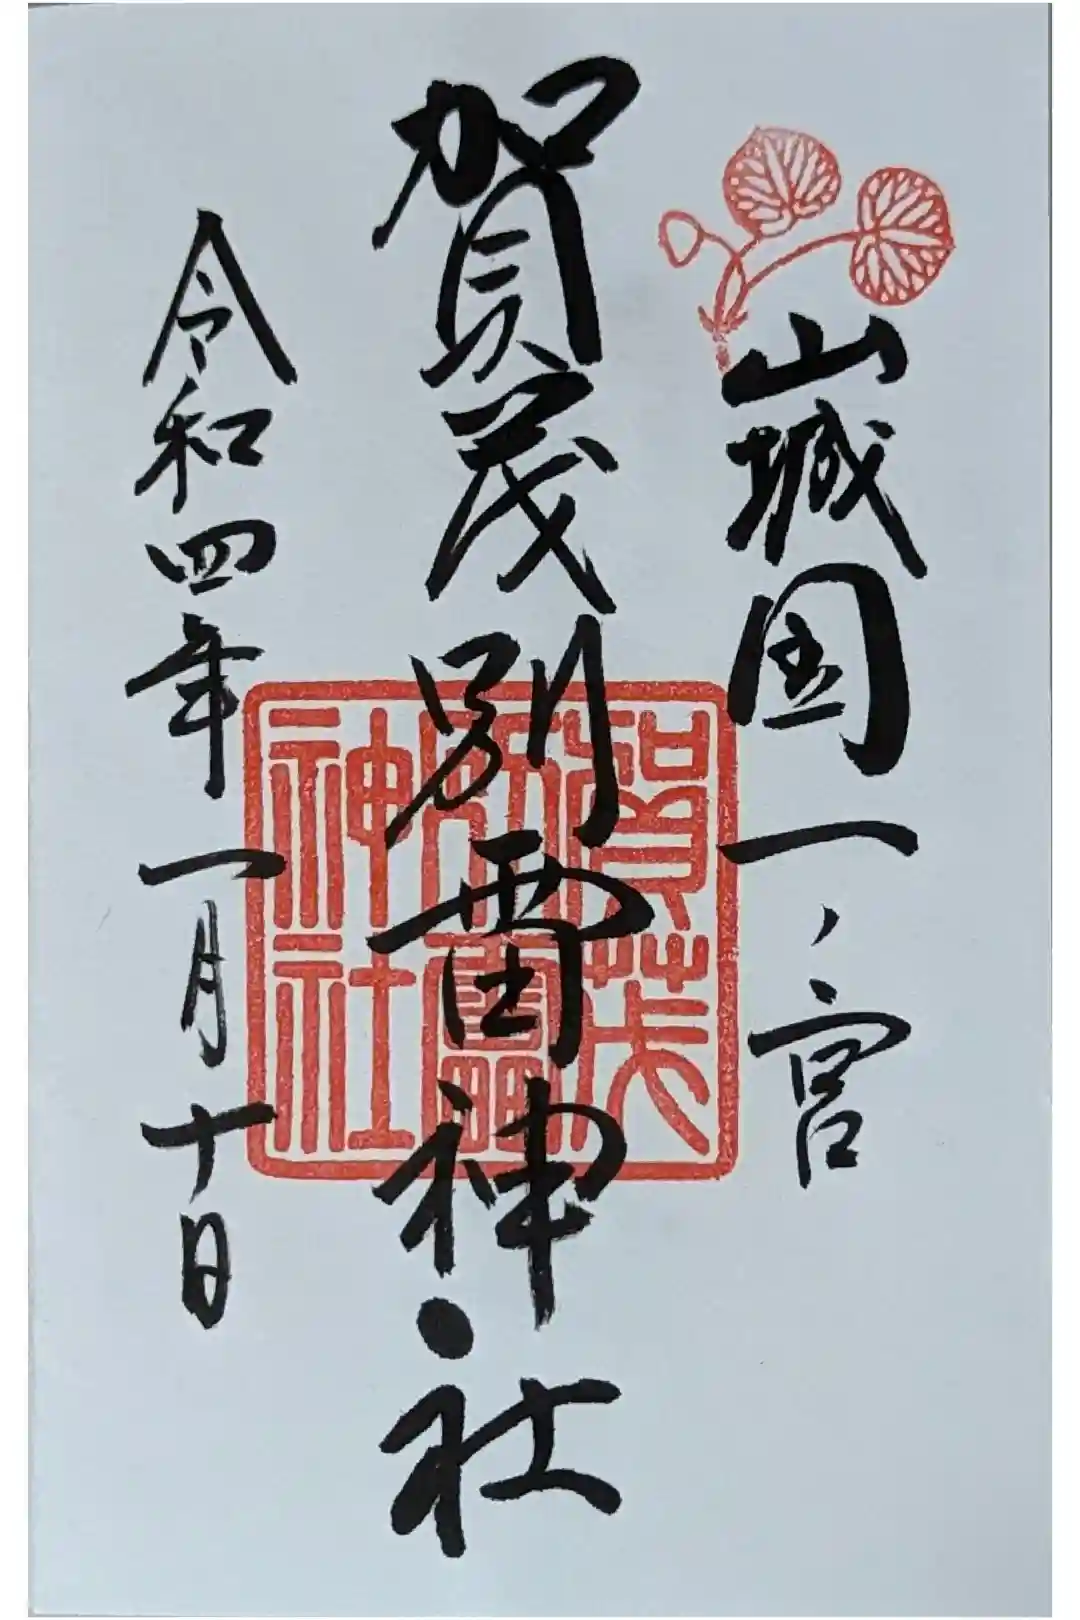 山城国一ノ宮
賀茂別雷神社
令和四年一月十日
賀茂
別雷
神社